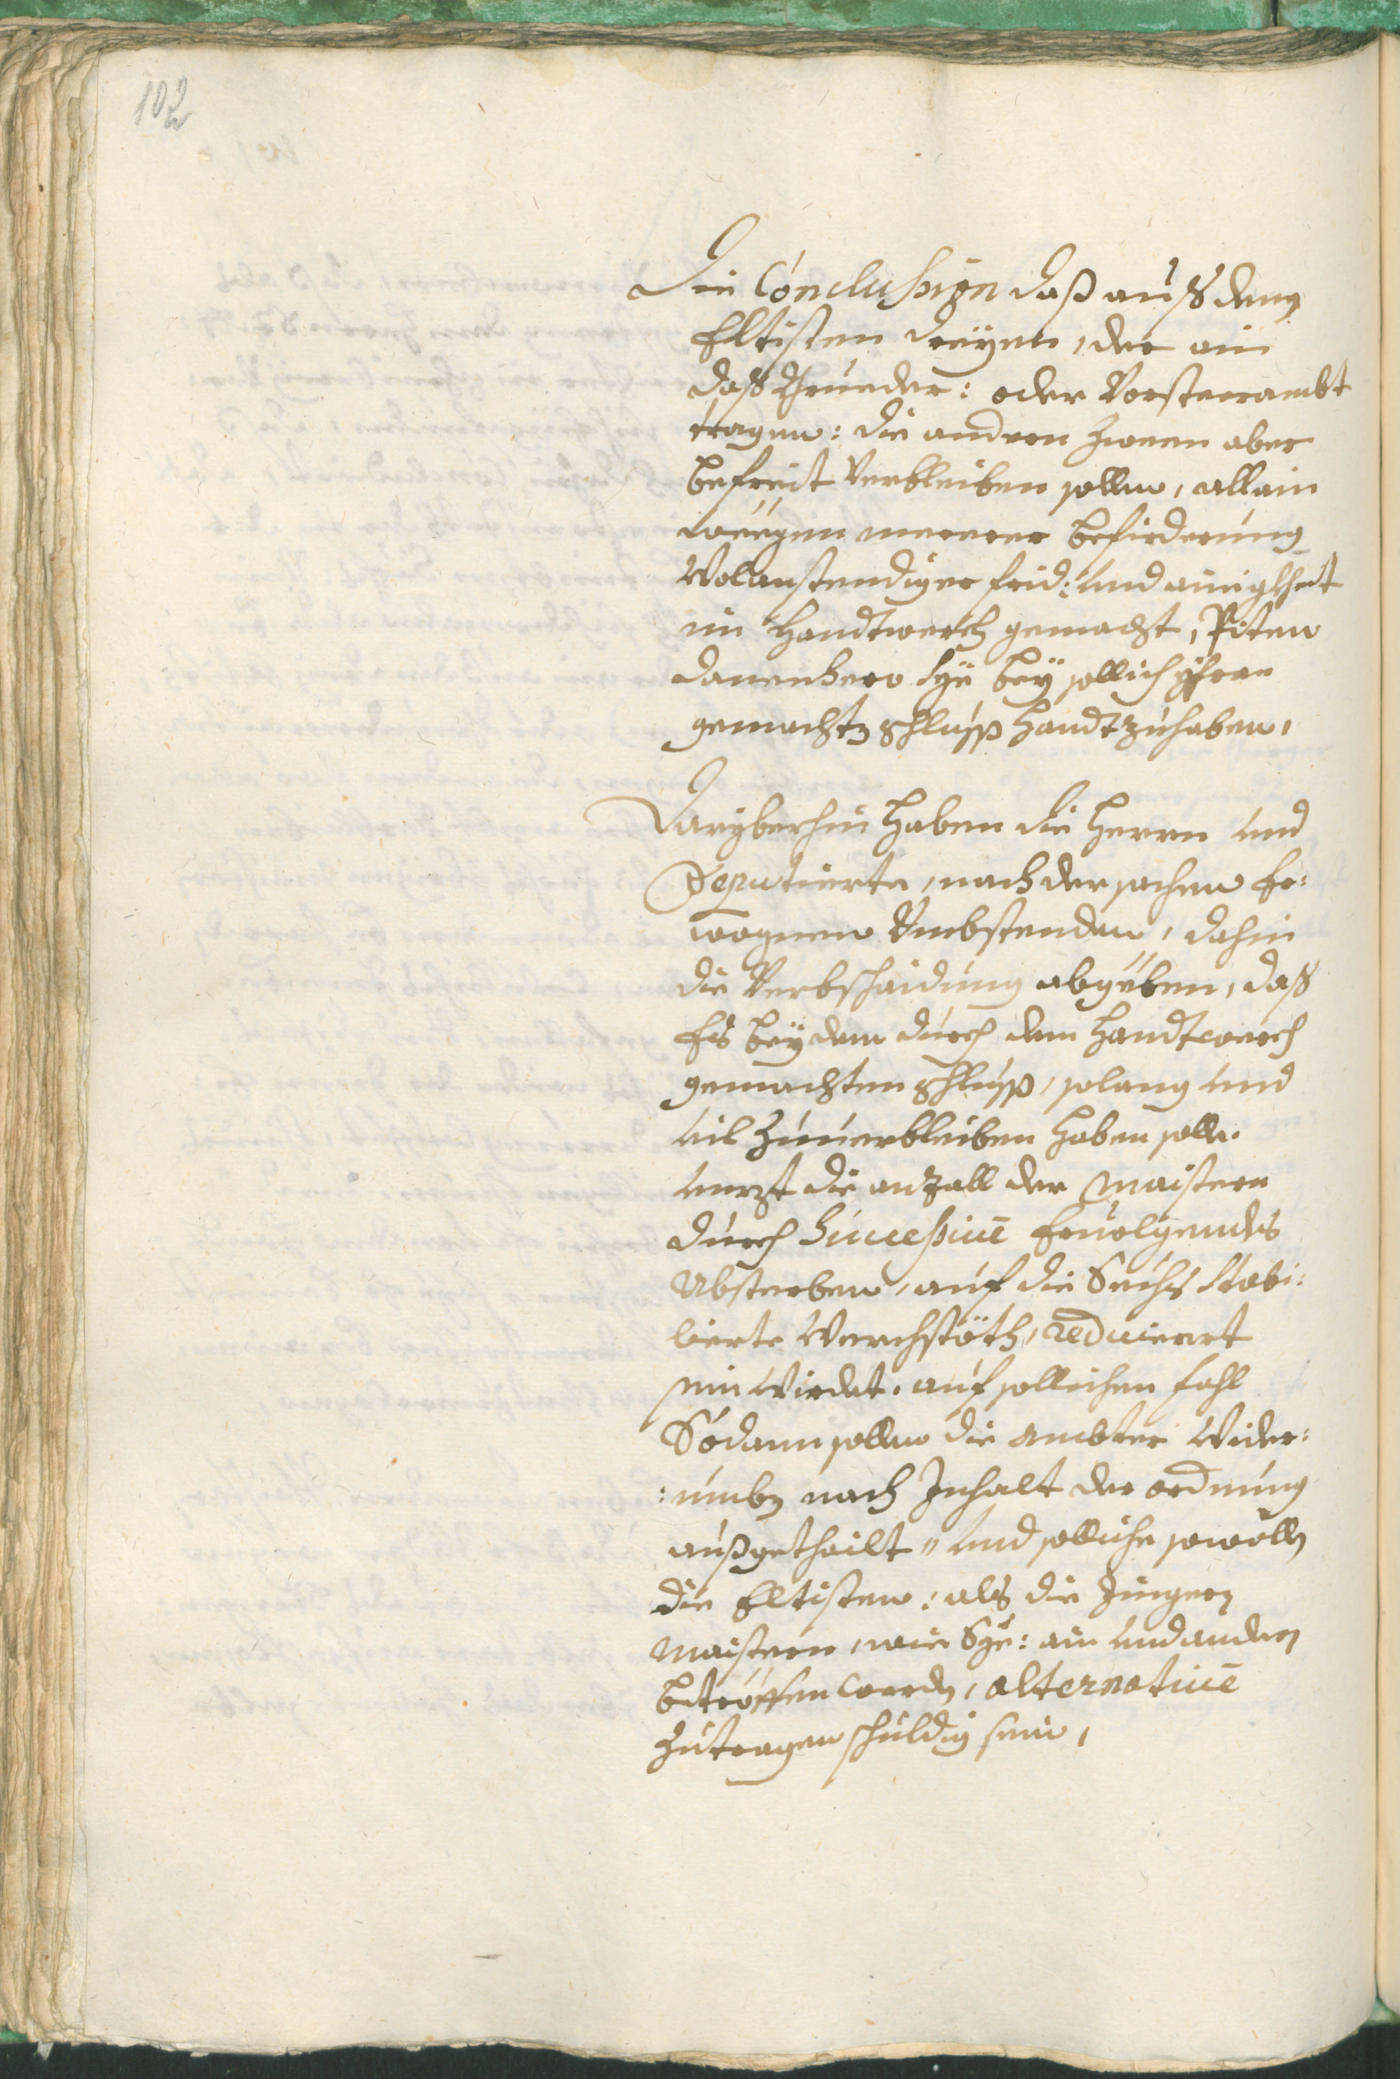 102
Die Conclusion daß auß denen
Eltisten dreÿen, der ain
daß Brueder: oder Vorsteerambt
tragen: die andern zween aber
befreit Verbleiben sollen, allain
weegen merrer befirderung
Wolanstendiger frid: Und ainigkheit
im Handtwerch gemacht, Piten
danenhero Sÿe beÿ sollich ihren
gemachten schluss handtzuhaben,
Darÿberhin haben die Herrn Und
Deputierte, nach der sachen Er-
wognen Umbstenden, dahin
die Verbschaidung abgeben, daß
Es beÿ dem durch dem Handtwerch
gemachten schluss, solang Und
Vil Zuuerbleiben haben solle.
Unzt die anzall der Maistern
durch Successiuè Eruolgendes
Absterben, auf die Sechs Stabi-
lierte Werchstöth, reduciert
sein Wirdet. auf sollichen fahl
Sodann sollen die ambter Wider-
:umben nach Inhalt der ordnung
außgethailt, Und solliche sowoll
die Eltisten: als die Jungern
Maistern, wie Sÿe: ain Und andern
betröffen werden, alternatiuè
Zutragen schuldig sein,